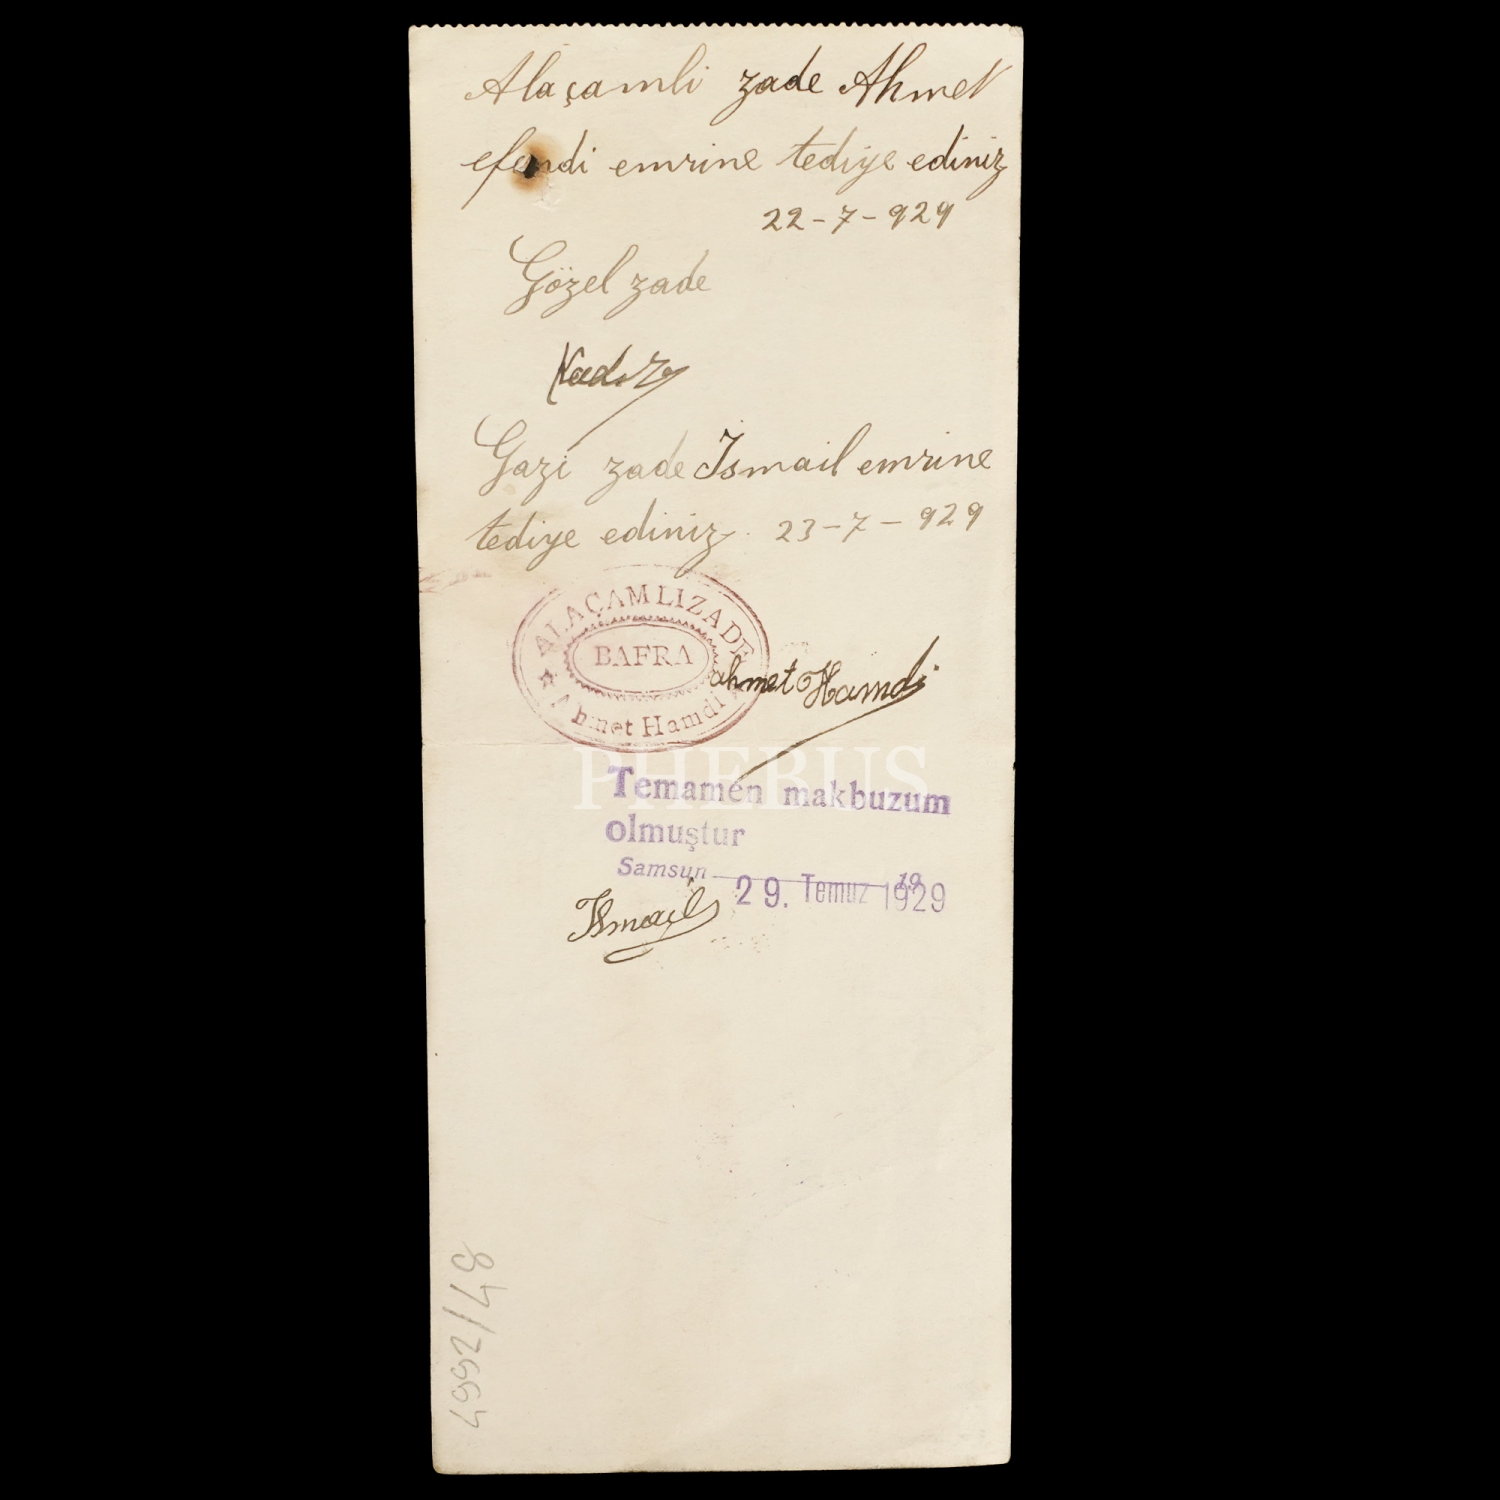 Alaçamli zade Ahmet
efendi emrine tediye ediniz
22-7-929
Gözel zade
Kadir
Gazi zade İsmail emrine
tediye ediniz. 23-7-929
ALAÇAMLIZADE
BAFRA
Ahmet Hamdi
ahmet Hamdi
PHEBUS
Temamen makbuzum
olmuştur
Samsun 19
29. Temuz 1929
İsmail